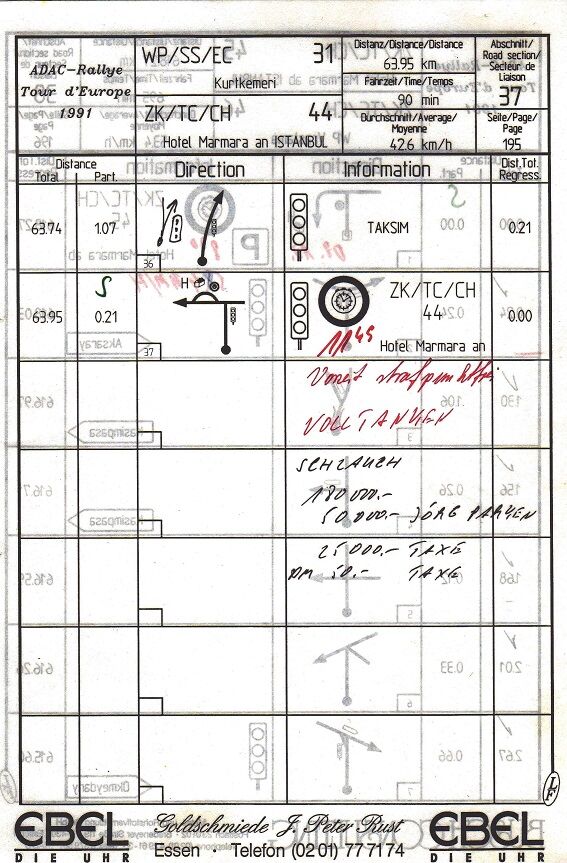 ADAC-Rallye
Tour d'Europe
1991
WP/SS/EC 31
Kurtkemeri
ZK/TC/CH 44
Hotel Marmara an ISTANBUL
Distanz/Distance/Distance
63.95 km
Fahrzeit/Time/Temps
90 min
Durchschnitt/Average/
Moyenne
42.6 km/h
Abschnitt/
Road section/
Secteur de
Liaison
37
Seite/Page/
Page
195
Distance
Total Part.
Direction
Information
Dist.Tot.
Regress.
63.74 1.07
36
TAKSIM
0.21
63.95 0.21
H
37
ZK/TC/CH
44
Hotel Marmara an
0.00
11 45
Vorzeit strafpunktfrei
VOLLTANKEN
SCHLAUCH
180 000.-
50 000.- JÖRG PARKEN
25 000.- TAXE
DM 50.- TAXE
EBEL
DIE UHR
Goldschmiede J. Peter Rust
Essen · Telefon (02 01) 77 71 74
EBEL
DIE UHR